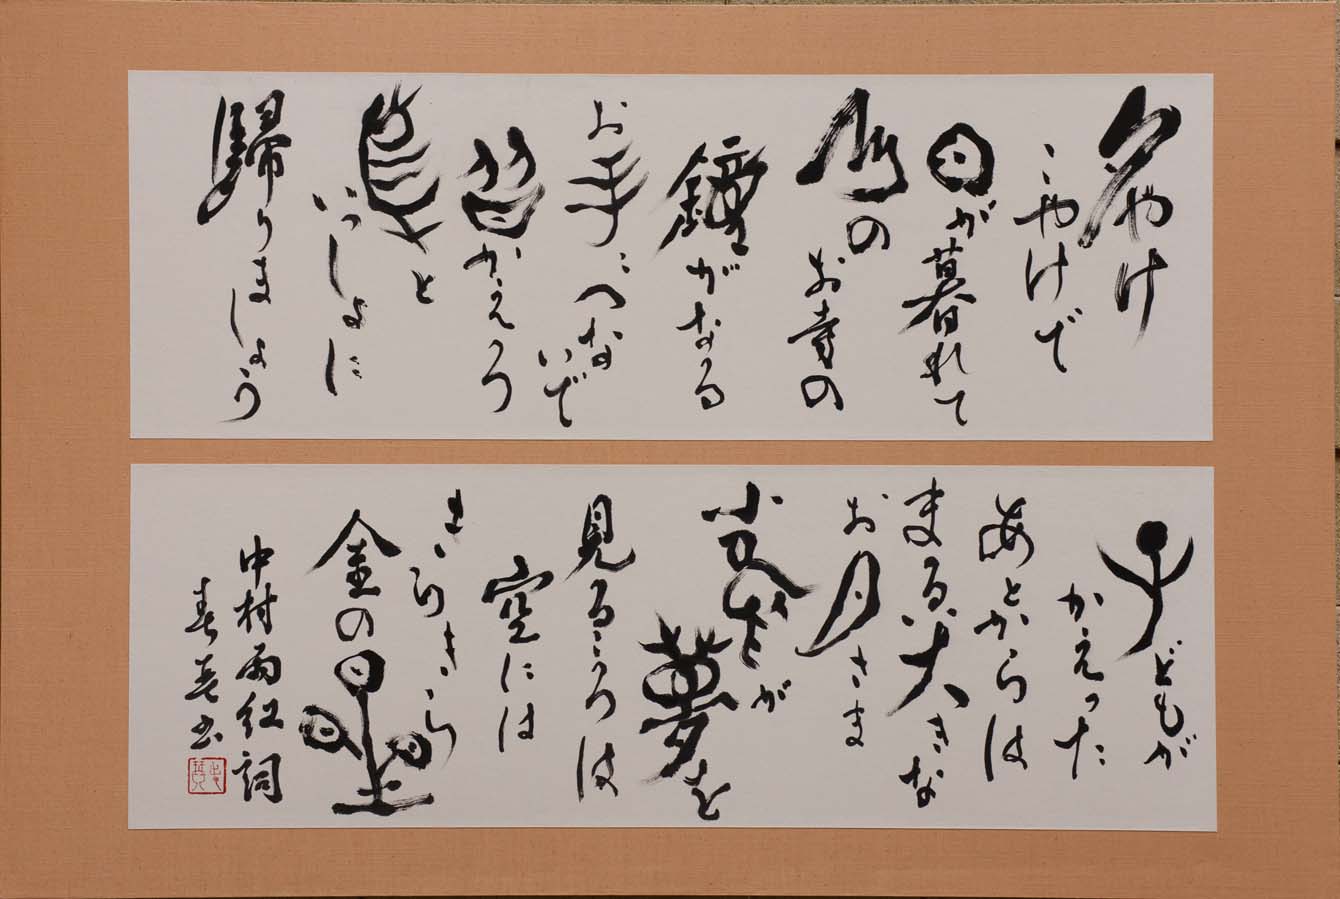 夕やけ
こやけで
日が暮れて
山の
お寺の
鐘がなる
お手々つない
いで
皆かえろう
烏と
いっしょに
歸りましょう
子どもが
かえった
あとからは
まるい大きな
お月さま
小鳥が
夢を
見るころは
空には
きらきら
金の星
中村雨紅詞